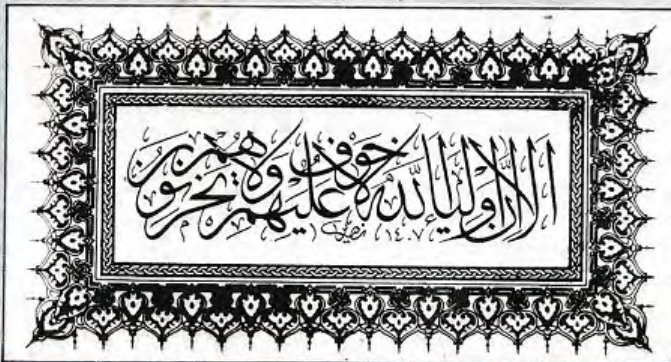 ألا إن أولياء الله لا خوف عليهم ولا هم يحزنون
١٤٠٧